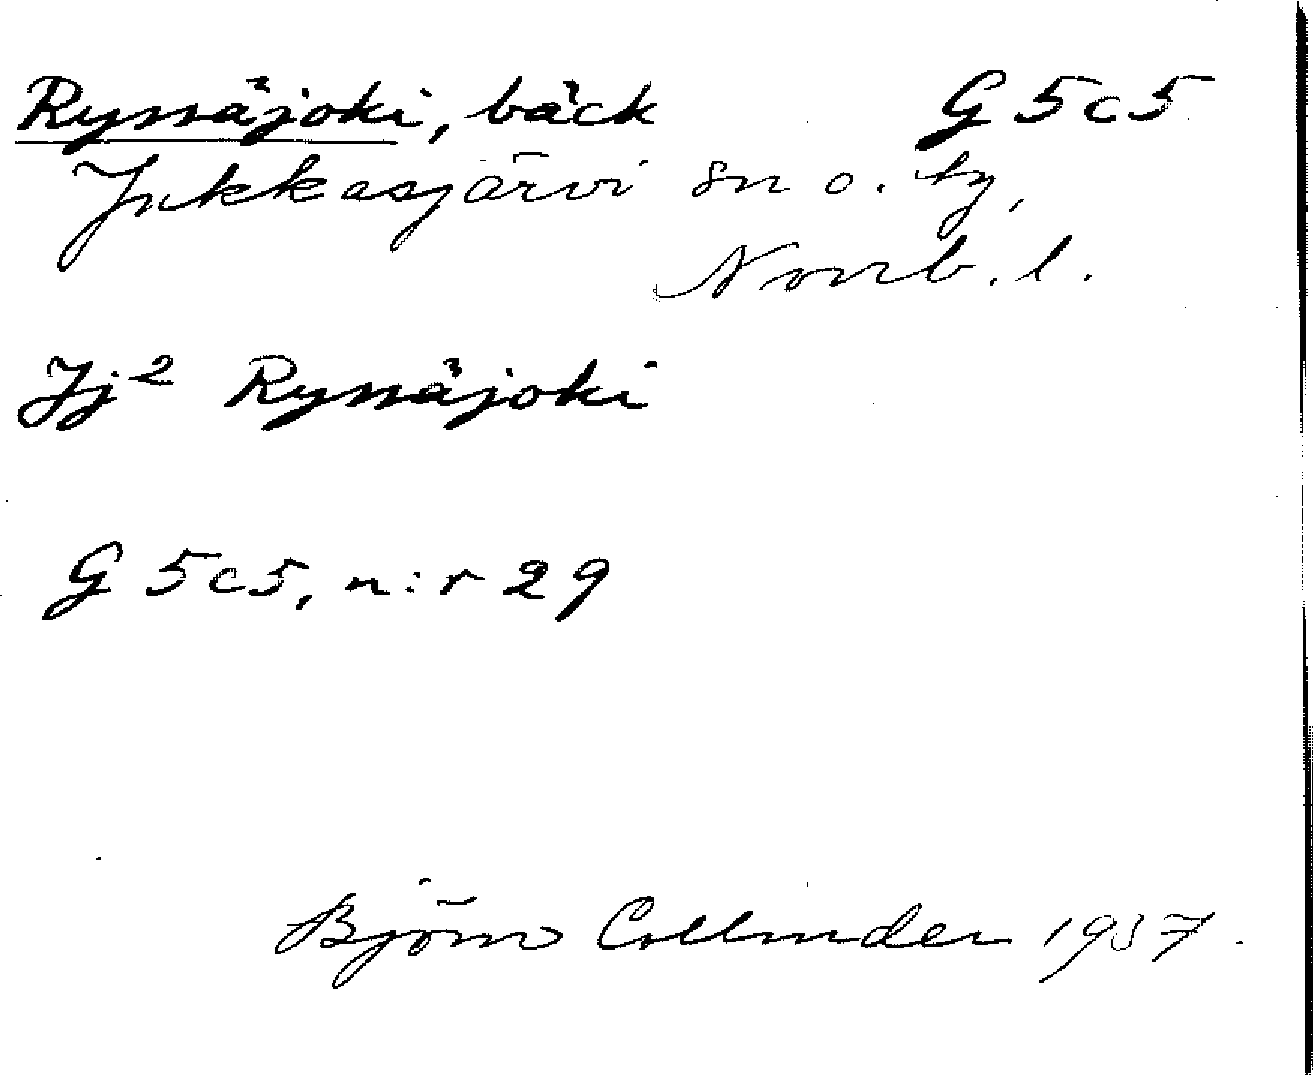 Ryssäjoki, bäck G 5 c 5
Jukkasjärvi sn o. tg,
Norrb. l.
Jj² Ryssäjoki
G 5 c 5, n:r 29
Björn Collinder 1937.